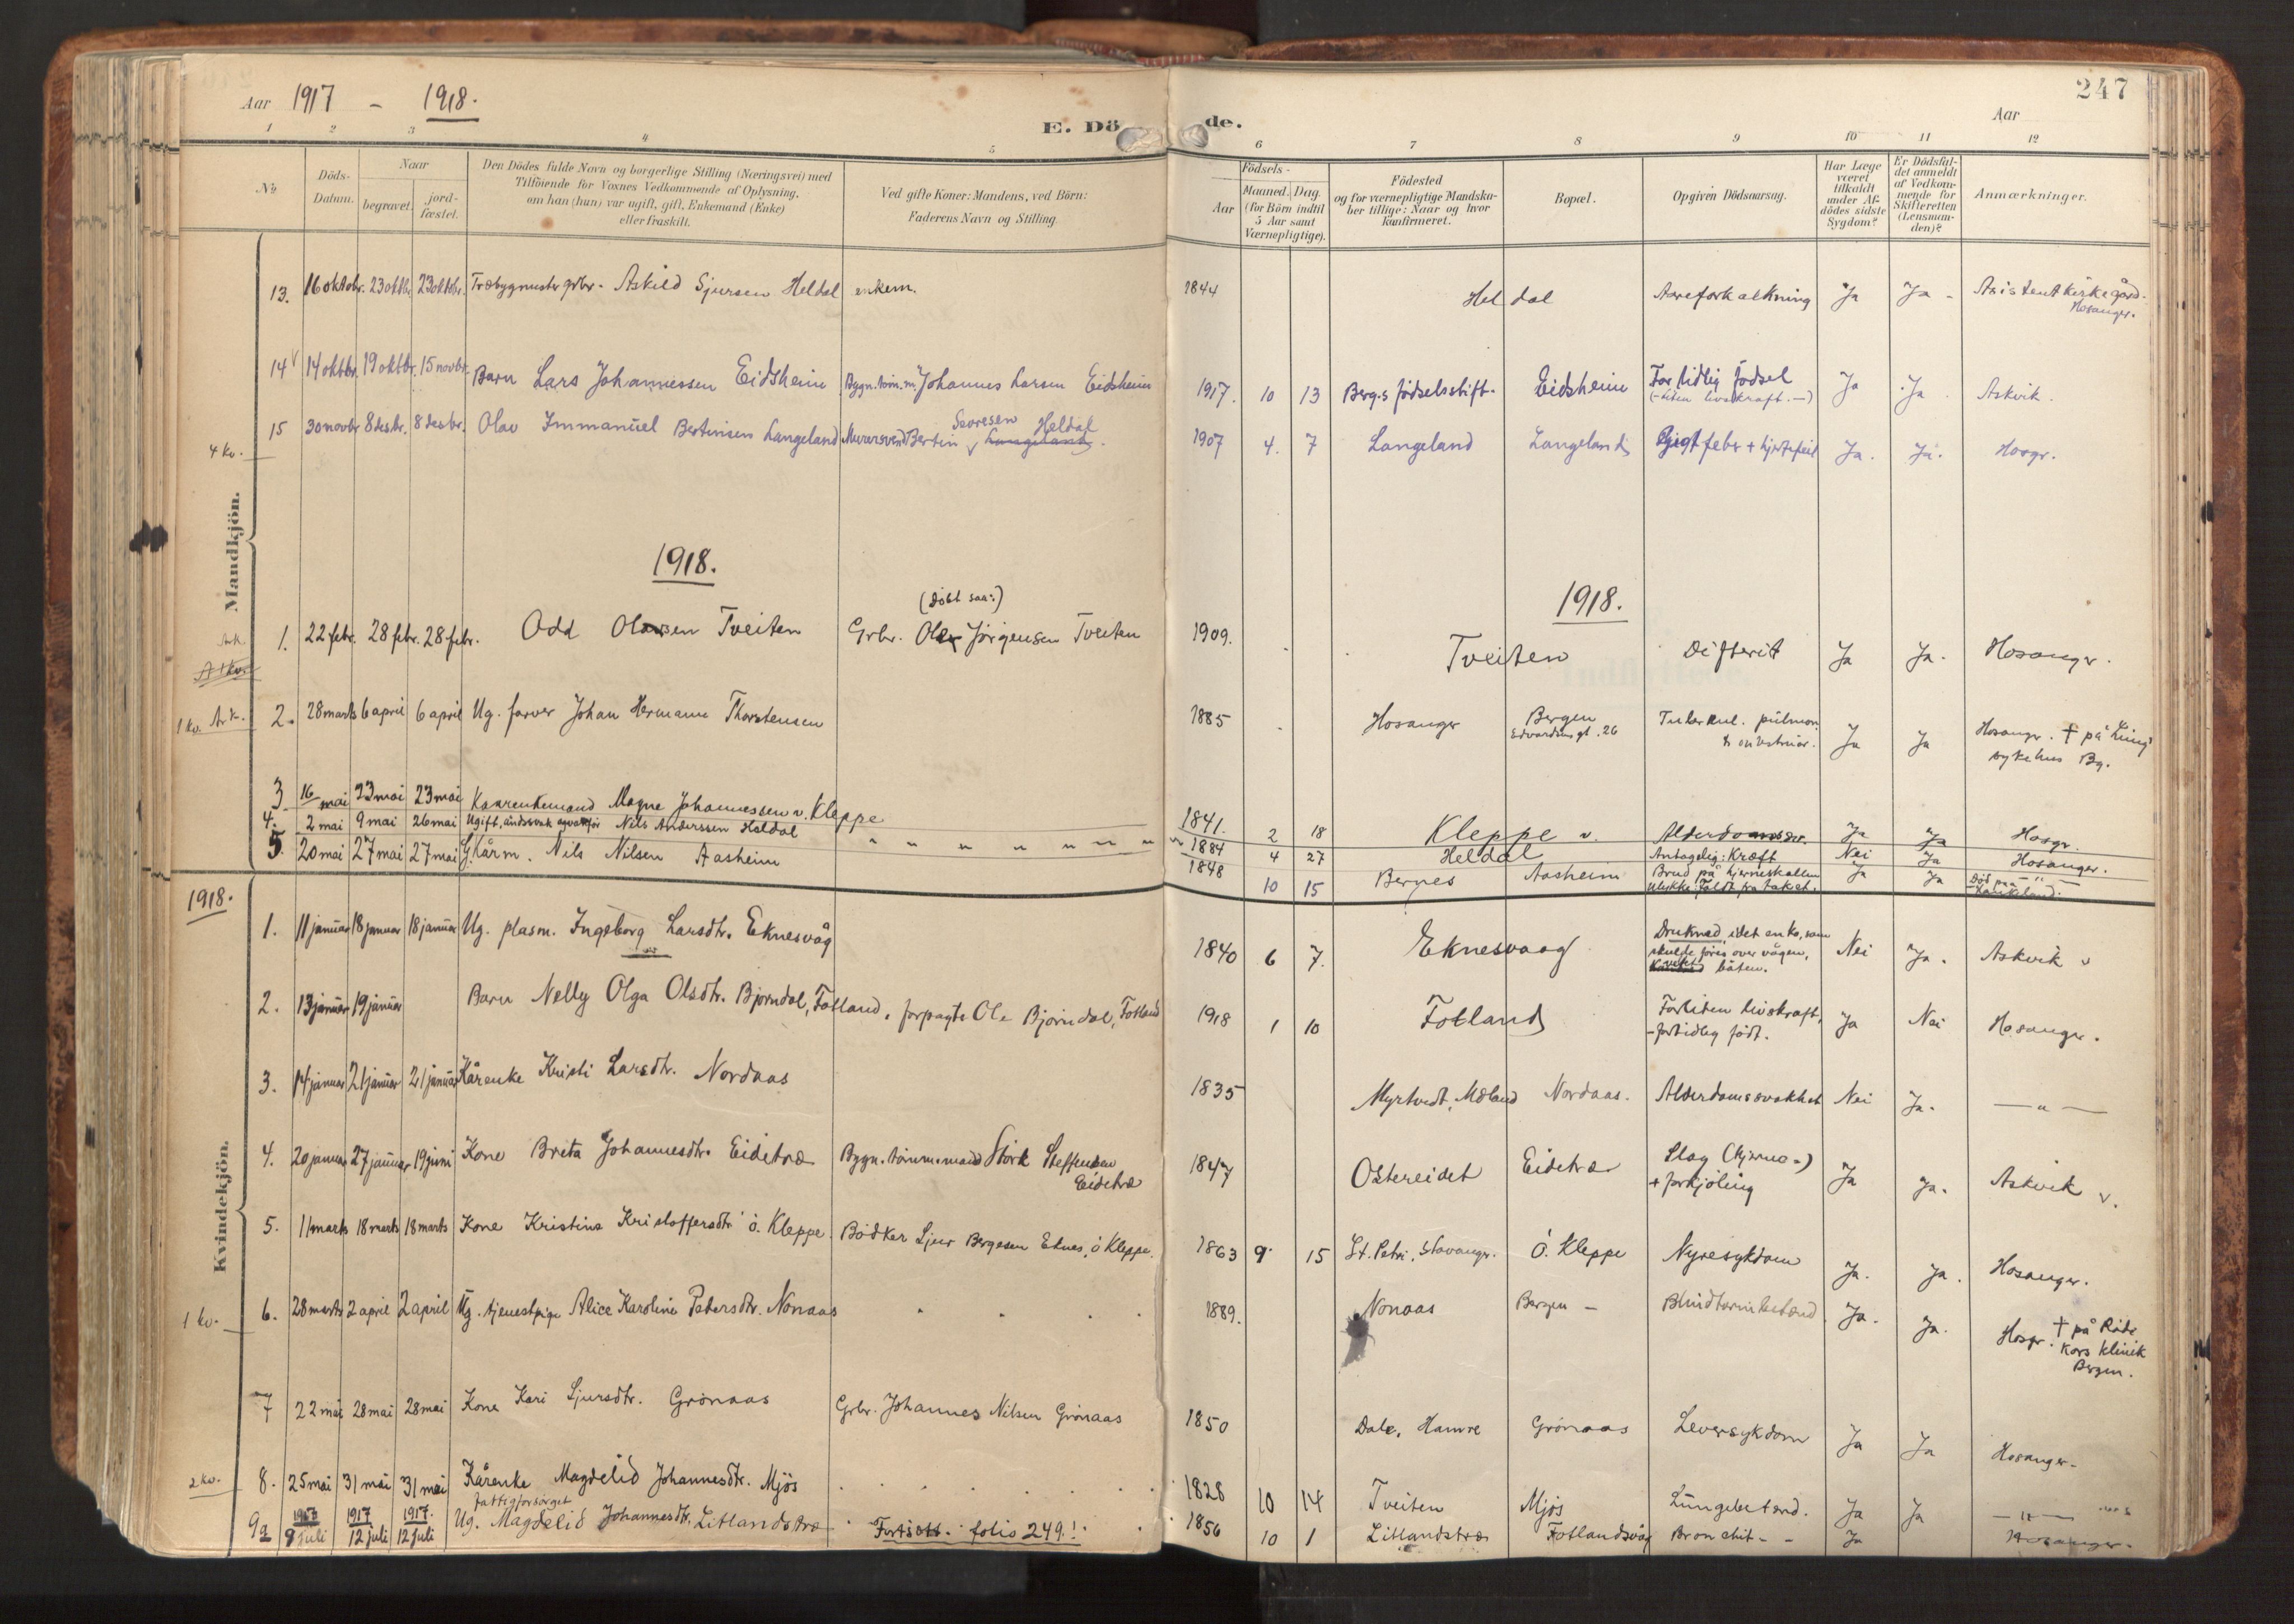 Aar 1917 - 1918.
247
Aar
E. Dö de.
1 2 3 4 5 6 7 8 9 10 11 12
No
Döds-
Datum.
Naar
begravet.
jord-
fæstet.
Den Dödes fulde Navn og borgerlige Stilling (Næringsvei) med
Tilföiende for Voxnes Vedkommende af Oplysning,
om han (hun) var ugift, gift, Enkemand (Enke)
eller fraskilt.
Ved gifte Koner: Mandens, ved Börn:
Faderens Navn og Stilling.
Födsels-
Aar
Maaned. Dag.
(for Börn indtil
5 Aar samt
Værnepligtige).
Födested
og for værnepligtige Mandska-
ber tillige: Naar og hvor
konfirmeret.
Bopæl.
Opgiven Dödsaarsag.
Har Læge
været
tilkaldt
under Af-
dödes sidste
Sygdom?
Er Dödsfal-
det anmeldt
af Vedkom-
mende for
Skifteretten
(Lensman-
den)?
Anmærkninger.
Mandkjön.
13. 16 oktobr. 23 oktbr. 23 oktobr. Træbygmester grbr. Askild Sjursen Heldal enkem. 1844 Heldal Aareforkalkning Ja Ja - Asistentkirkegård.
Hosanger.
14 v 14 oktbr. 19 oktbr. 15 novbr. Barn Lars Johannessen Eidsheim Bygn.tøm.m. Johannes Larsen Eidsheim 1917. 10 13 Berg.s födselsstift. Eidsheim For tidlig födsel Ja Ja Askvik.
(-liten livskraft.-)
Sevresen Heldal
15 30 novbr 8 desbr. 8 desbr. Olav Immanuel Bertinsen Langeland Murersvend Bertin v Langeland. 1907 4. 7 Langeland Langeland Gigtfeber + hjertefeil Ja. Ja. Hosgr.
4 kv.
1918.
1918.
(döbt saa:)
1. 22 febr. 28 febr. 28 febr. Odd Olavsen Tveiten Grbr. Olav Jörgensen Tveiten 1909. Tveiten Difterit Ja Ja. Hosanger.
2. 28 marts 6 april 6 april Ug. farver Johan Hermann Thorstensen 1885 Hosanger Bergen
Edvardsens gt. 26
Tuberkul. pulmon. Ja Ja Hosanger. † på Lung.
sykehus Bg.
1 kv. Ark.
3 16 mai 23 mai 23 mai Kaarenkemand Magne Johannessen v. Kleppe 1841. 2 18 Kleppe v. Ja Ja Hosgr.
4. 2 mai 9 mai 26 mai Ugift, Nils Anderssen Heldal 1884 4 27 Heldal Antagelig: Kræft Nei Ja Hosanger.
5. 20 mai 27 mai 27 mai Gkårm. Nils Nilsen Aasheim 1848 10 15 Bernes Aasheim Brud på hjerneskallen Ja Ja - " -
ulykke: Faldt fra taket.
1918.
Kvindekjön.
1. 11 januar 18 januar 18 januar Ug. plasm. Ingeborg Larsdtr. Eknesvåg 1840 6 7. Eknesvaag Druknad, idet en ko, som
skulde föres over vågen,
båten.
Nei Ja. Askvik v
2. 13 januar 19 januar Barn Nelly Olga Olsdtr. Bjorndal, Fotland. forpagtr Ole Bjorndal, Fotland 1918 1 10 Fotland For liten livskraft, Ja Nei Hosanger.
-fortidlig född.
3. 14 januar 21 januar 21 januar Kårenke Kristi Larsdtr. Nordaas 1835 Myrtvedt, Mæland Nordaas. Alderdomssvakhet Nei Ja. - " -
4. 20 januar 27 januar 19 juni Kone Brita Johannesdtr. Eidetræ Bygn.tömmermand Störk Steffensen
Eidetræ
1847 Ostereidet Eidetræ Slag (hjerne-) Ja Ja. Askvik v.
+ forkjöling
5. 11 marts 18 marts 18 marts Kone Kristine Kristoffersdtr. ö. Kleppe Bödker Sjur Bergesen Eknes, ö Kleppe. 1863 9. 15 St. Petri, Stavanger. Ö. Kleppe Nyresykdom Ja. Ja. Hosanger.
6. 28 marts 2 april 2 april Ug. tjenestpige Alice Karoline Petersdtr. Nonaas 1889. Nonaas Bergen - Blindtarmbetænd. Ja. Ja. Hosgr. † på Röde
Kors klinik
Bergen.
1 kv.
7 22 mai 28 mai 28 mai Kone Kari Sjursdtr. Grönaas Grbr. Johannes Nilsen Grönaas 1850 Dale, Hamre Grönaas Leversykdom Ja Ja Hosanger.
8. 25 mai 31 mai 31 mai Kårenke Magdelid Johannesdtr. Mjös 1828 10 14 Tveiten Mjös Lungebetænd. Ja Ja - " -
2 kv.
fattigforsörget
1917 1917 1917.
9a 9 juli 12 juli 12 juli Ug. Magdelid Johannesdtr. Litlandstræ Fortsatt folio 249.! 1856 10 1 Litlandstræ Fotlandsvåg Bronchit - - Ja Hosanger.